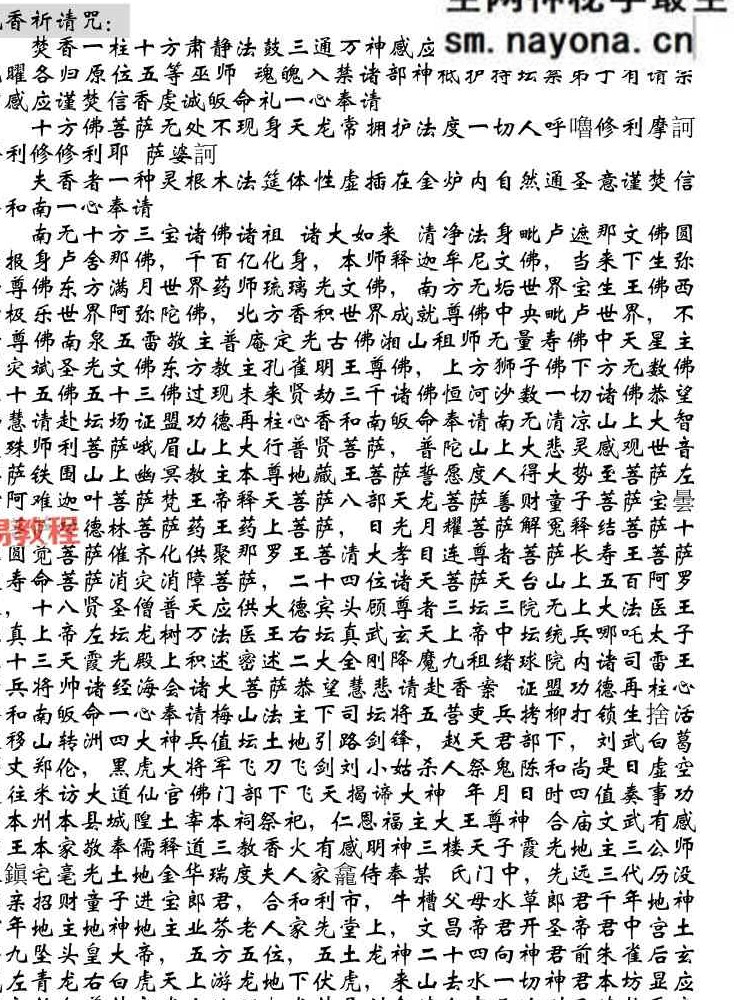 香祈请咒：
焚香一柱十方肃静法鼓三通万神感应
sm.nayona.cn
曜各归原位五等巫师 魂魄入禁诸部神祇护持坛
感应谨焚信香虔诚皈命礼一心奉请
十方佛菩萨无处不现身天龙常拥护法度一切人呼嚕修利摩訶
利修修利耶 萨婆訶
夫香者一种灵根木法筵体性虚插在金炉内自然通圣意谨焚信
和南一心奉请
南无十方三宝诸佛诸祖 诸大如来 清净法身毗卢遮那文佛圆
报身卢舍那佛，千百亿化身，本师释迦牟尼文佛，当来下生弥
尊佛东方满月世界药师琉璃光文佛，南方无垢世界宝生王佛西
极乐世界阿弥陀佛，北方香积世界成就尊佛中央毗卢世界，不
尊佛南泉五雷敬主普庵定光古佛湘山祖师无量寿佛中天星主
灾斌圣光文佛东方教主孔雀明王尊佛，上方狮子佛下方无数佛
十五佛五十三佛过现未来贤劫三千诸佛恒河沙数一切诸佛恭望
慧请赴坛场证盟功德再柱心香和南皈命奉请南无清凉山上大智
殊师利菩萨峨眉山上大行普贤菩萨，普陀山上大悲灵感观世音
萨铁围山上幽冥教主本尊地藏王菩萨誓愿度人得大势至菩萨左
阿难迦叶菩萨梵王帝释天菩萨八部天龙菩萨善财童子菩萨宝曇
易教程
德林菩萨药王药上菩萨，日光月耀菩萨解冤释结菩萨十
圆觉菩萨催齐化供聚那罗王菩清大孝目连尊者菩萨长寿王菩萨
寿命菩萨消灾消障菩萨，二十四位诸天菩萨天台山上五百阿罗
，十八贤圣僧普天应供大德宾头顾尊者三坛三院无上大法医王
真上帝左坛龙树万法医王右坛真武玄天上帝中坛统兵哪吒太子
十三天霞光殿上积述密述二大全刚降魔九祖绪球院内诸司雷王
兵将帅诸经海会诸大菩萨恭望慧悲请赴香案 证盟功德再柱心
和南皈命一心奉请梅山法主下司坛将五营吏兵拷柳打锁生捨活
移山转洲四大神兵值坛土地引路剑锋，赵天君部下，刘武白葛
丈郑伦，黑虎大将军飞刀飞剑刘小姑杀人祭鬼陈和尚是日虚空
往来访大道仙官佛门部下飞天揭谛大神 年月日时四值奏事功
本州本县城隍土宰本祠祭祀，仁恩福主大王尊神 合庙文武有感
王本家敬奉儒释道三教香火有感明神三楼天子霞光地主三公师
鎭宅毫光土地金华瑞度夫人家龕侍奉某 氏门中，先远三代历没
亲招财童子进宝郎君，合和利市，牛槽父母水草郎君千年地神
年地主地神地主业芬老人家先堂上，文昌帝君开圣帝君中宫土
九坠头皇大帝，五方五位，五土龙神二十四向神君前朱雀后玄
左青龙右白虎天上游龙地下伏虎，来山去水一切神君本坊显应